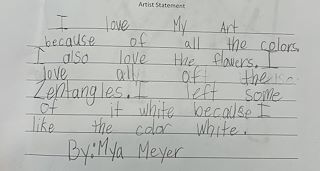 Artist Statement
I love My Art
because of all the colors.
I also love the flowers. I
love all off the
Zentangles. I left some
of it white because I
like the color white.
By: Mya Meyer